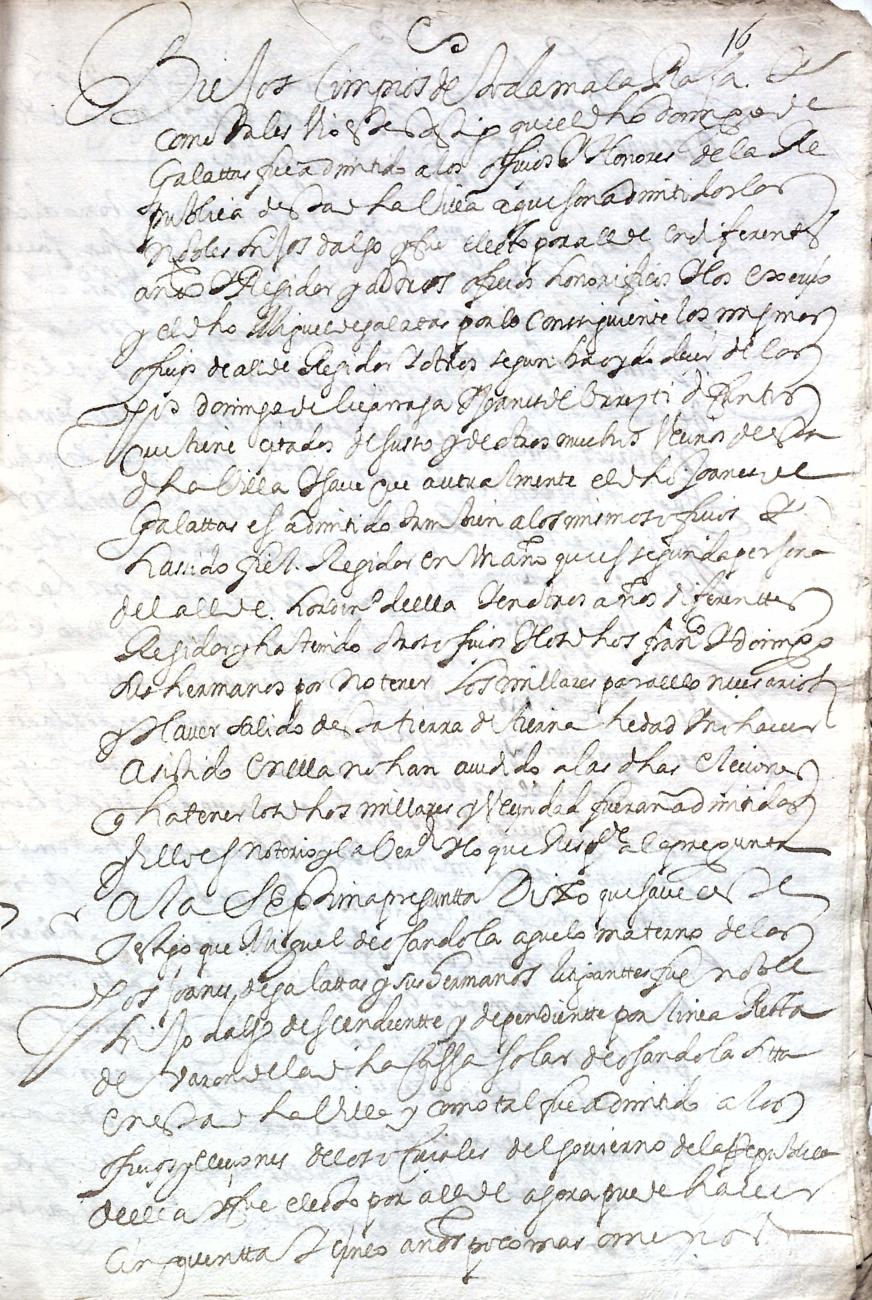 16
Viejos limpios de toda mala Raza. Y
como tales vio este testigo que el dho domingo de
Galattas fue admitido a los oficios y Honores de la Re
publica desta dha Villa a que son admitidos los
Nobles hijos dalgo y fue electo por allde en diferentes
años y Regidor y a otros oficios honorificos y los exerçio
y el dho Miguel de galatas por lo consiguiente los mismos
ofiçios de allde Regidor y otros segun ha oydo deçir de los
dhos domingo de liçarraga y Joanes de Urreyti difuntos
que tiene citados de suso y de otros muchos Veçinos desta
dha Villa y save que actualmente el dho Joanes de
Galattas es admitido tambien a los mismos ofiçios y
ha sido fiel Regidor en Un año que es segunda persona
del allde hordinº della y en otros años diferenttes
Regidor y ha tenido otros ofiçios y los dhos franco y domingo
sus hermanos por no tener los millares para ello neçesarios
y Haver salido desta tierra de tierna hedad y no haver
asistido en ella no han acudido a las dhas eleçiones
y ha tener los dhos millares y Veçindad fueran admitidos
y ello es notorio y la Verd y lo que Respde a la pregunta
A la Septima pregunta Dixo que save este
testigo que Miguel de osandola aguelo materno de los
dhos Joanes de galattas y sus hermanos litigantes fue noble
hijo dalgo descendientte y dependientte por linea Recta
de varon de la dha Cassa solar de osandola sitta
en esta dha Villa y como tal fue admitido a los
ofiçios y elecçiones de los ofiçiales del govierno de la Republica
della y fue electo por allde agora puede haver
Cinquentta y Çinco años poco mas o menos